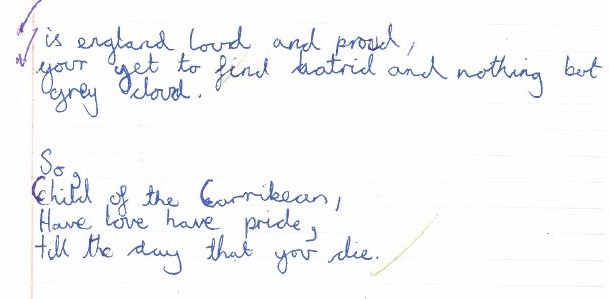 is england loud and proud,
your yet to find hatrid and nothing but
grey cloud.
So,
Child of the Carrikean,
Have love have pride,
till the day that you die.